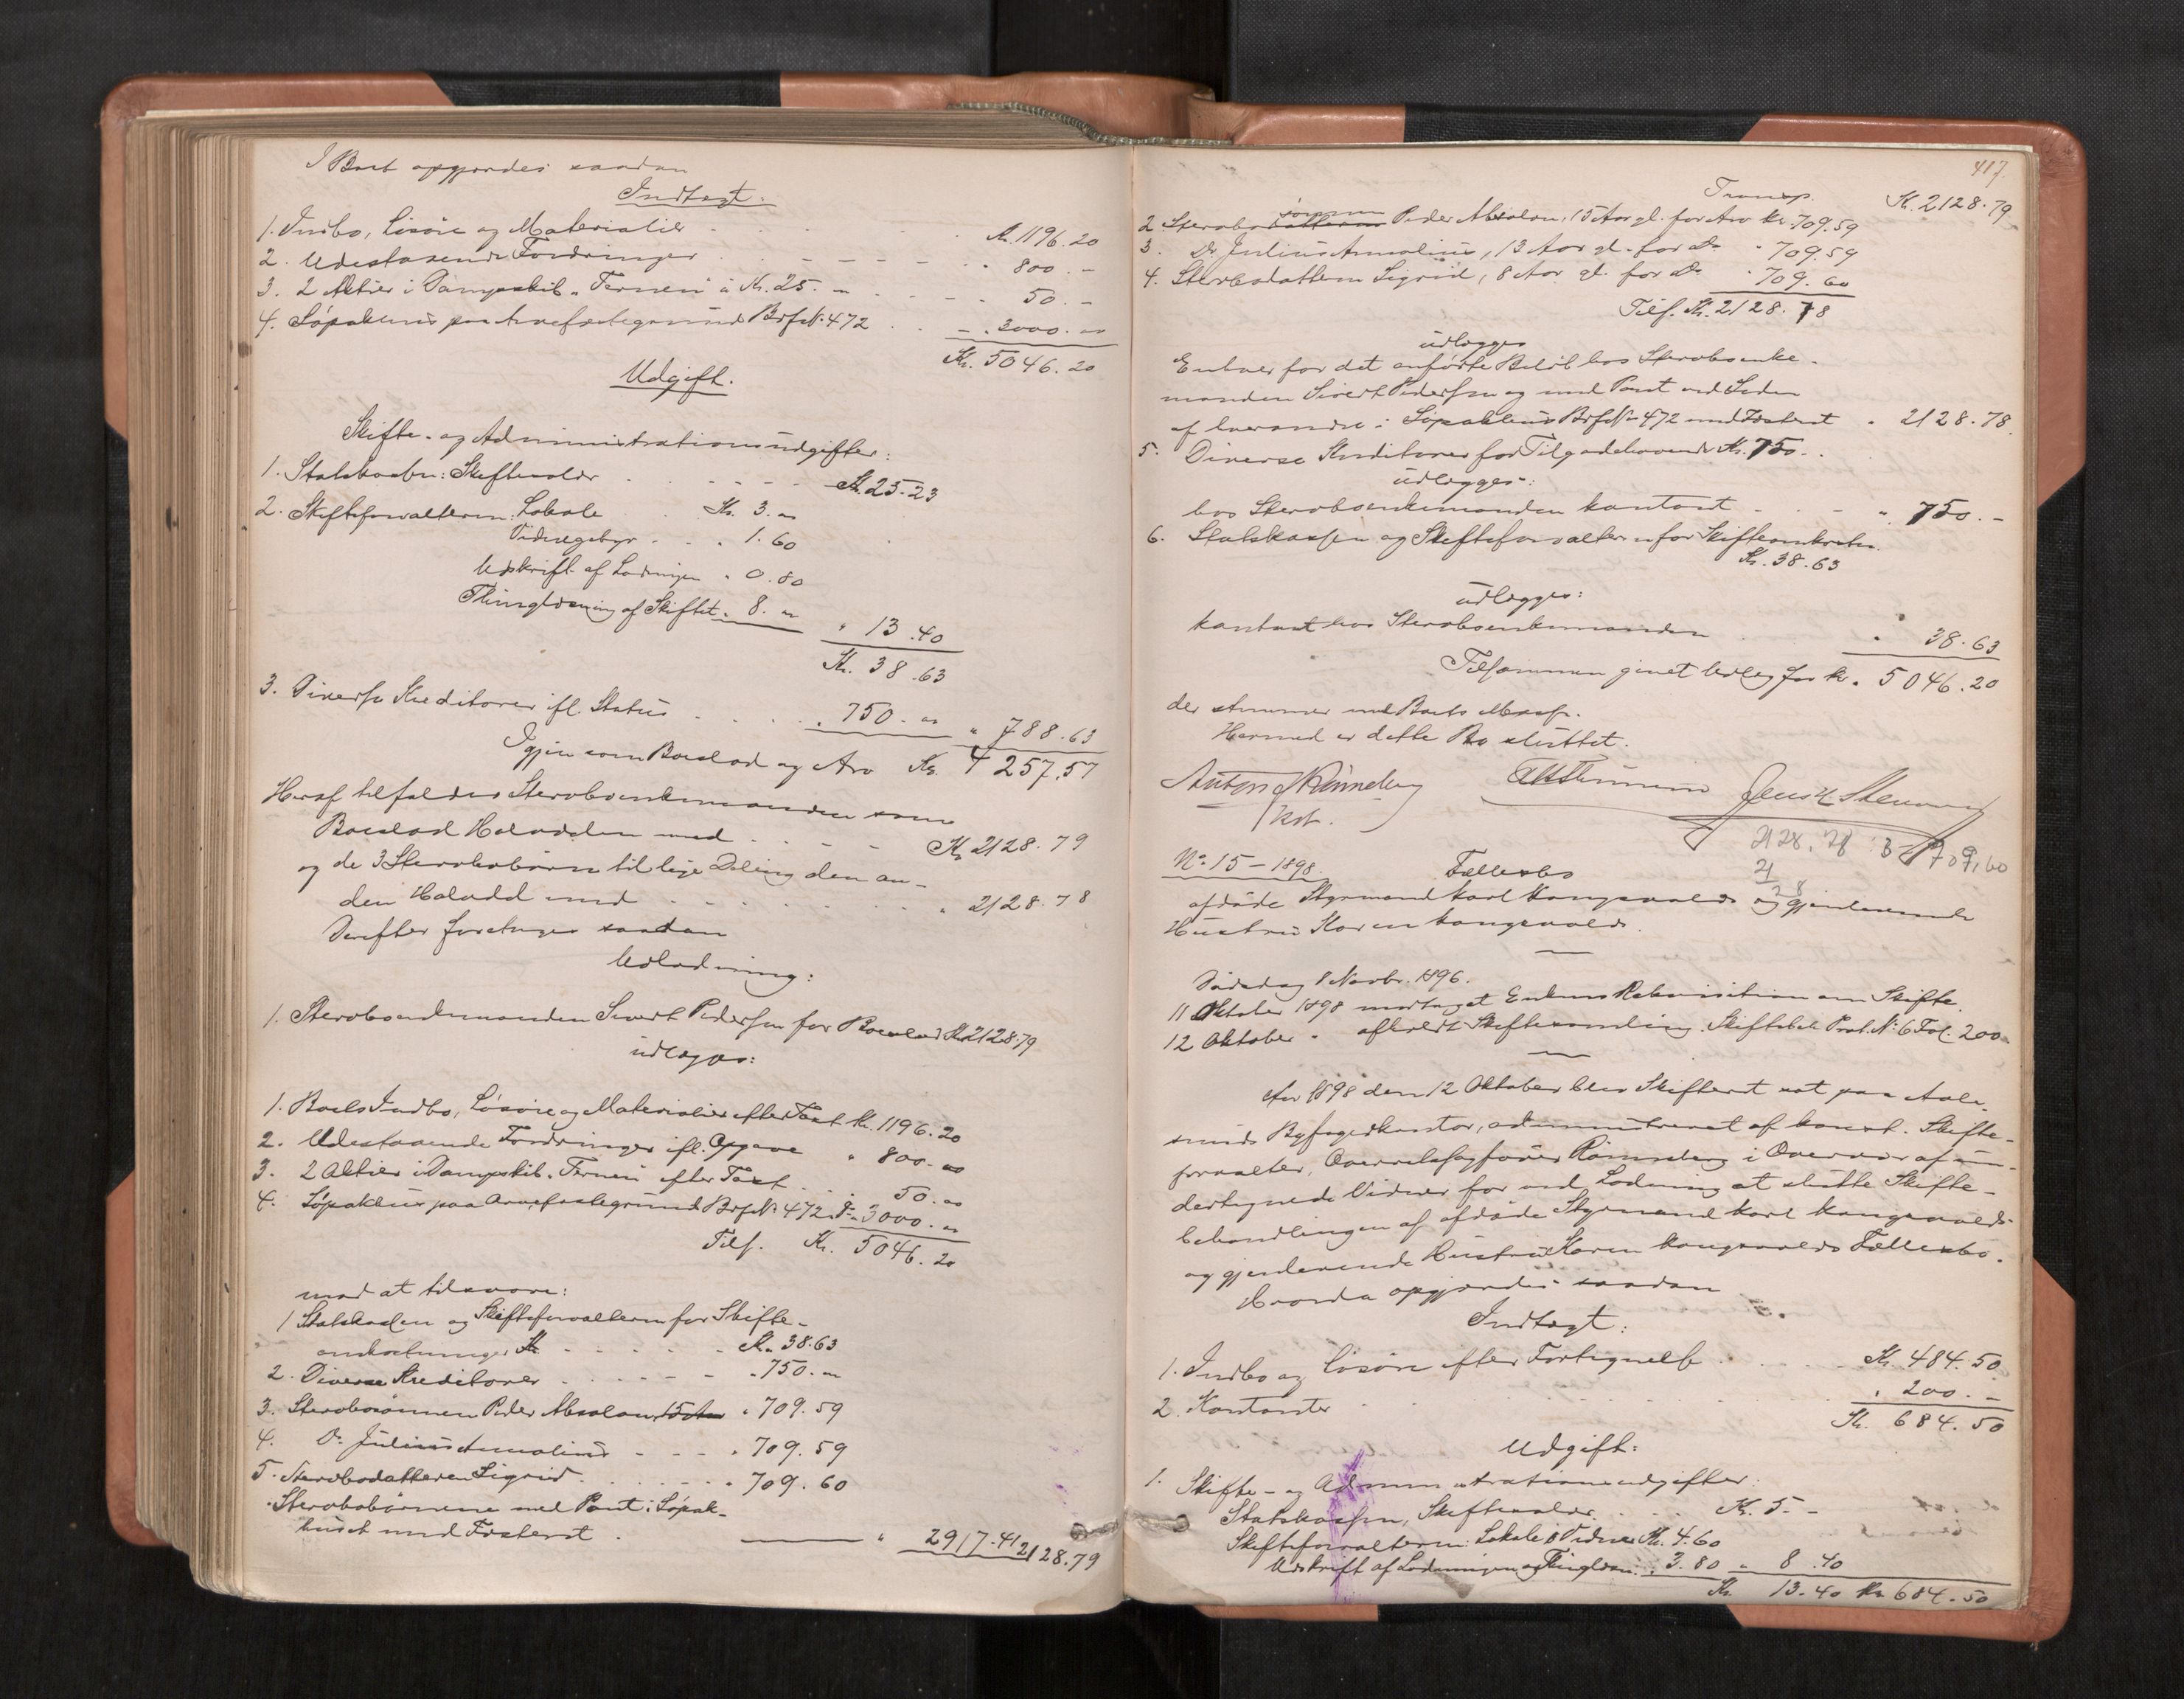 I Boet opgjordes saadan
Indtægt.
1. Indbo, Løsøre og Materialier Kr. 1196.20
2. Udestaaende Fordringer " 800.-
3. 2 Aktier i Dampskib. Fernen à Kr. 25.- 50.-
4. Søpakhus paa Arvefæstegrund Brfk№ 472 - 3000.-
Kr. 5046.20
Udgift.
Skifte- og Administrationsudgifter:
1. Statskassen: Skifteafgift Kr. 25.23
2. Skifteforvalteren: Lokale Kr. 3.-
Vidnegebyr " 1.60
Udskrift af Lodningen " 0.80
Thinglæsning af Skiftet " 8.-
" 13.40
Kr. 38.63
3. Diverse Kreditorer ifl. Status " 750.- " 788.63
Igjen som Boeslod og Arv Kr. 4257.57
Heraf tilfalder Sterboenkemanden som
Boeslod Halvdelen med Kr. 2128.79
og de 3 Sterbobørn til lige Deling den an-
den Halvdel med " 2128.78
Derefter foretages saadan
Udlodning:
1. Sterboenkemanden Sivert Pedersen for Boeslod Kr. 2128.79
udlægges:
1. Boets Indbo, Løsøre og Materialier efter Taxt Kr. 1196.20
2. Udestaaende Fordringer ifl. Opgave " 800.-
3. 2 Aktier i Dampskib. Fernen efter Taxt 50.-
4. Søpakhus paa Arvefæstegrund Brfk№ 472 " 3000.-
Tils. Kr. 5046.20
mod at tilsvare:
1 Statskassen og Skifteforvalteren for Skifte-
omkostninger Kr. Kr. 38.63
2. Diverse Kreditorer " 750.-
3. Sterbosønnen Peder Absalon 15 Aar " 709.59
4. Do. Julius Annalius " 709.59
5. Sterbodatteren Sigrid " 709.60
Sterbobørnene med Pant i Søpak-
huset med Fæsteret " 2917.41 2128.79
417.
Transp. Kr. 2128.79
sønnen
2 Sterbodatteren Peder Absalon, 15 Aar gl. for Arv Kr. 709.59
3. Do Julius Annalius, 13 Aar gl. for Do " 709.59
4. Sterbodatteren Sigrid, 8 Aar gl. for Do " 709.60
Tils. Kr. 2128.78
udlægges
Enhver for det anførte Beløb hos Sterboenke-
manden Sivert Pedersen og med Pant ved Siden
af hverandre i Søpakhus Brfk№ 472 med Fæsteret " 2128.78
5. Diverse Kreditorer for Tilgodehavende Kr. 750.-
udlægges:
hos Sterboenkemanden kontant " 750.-
6. Statskassen og Skifteforvalteren for Skifteomkostn.
Kr. 38.63
udlægges:
kontant hos Sterboenkemanden " 38.63
Tilsammen gjort Udlæg for Kr. 5046.20
der stemmer med Boets Masse.
Hermed er dette Bo sluttet.
Anton Rønneberg
kst.
2128.78 : 3 = 709,60
21
28
№ 15 - 1898. Fællesbo
afdøde Styrmand Karl Kongsvolds og gjenlevende
Hustru Karen Kongsvolds.
Dødsdag 8 Novbr. 1896.
11 Oktober 1898 modtaget Enkens Rekvisition om Skifte.
12 Oktober " afholdt Skiftesamling. Skiftebeh. Prot. № 6 Fol. 200
Aar 1898 den 12 Oktober blev Skifteret sat paa Aale-
sunds Byfogedkontor, administreret af konst. Skifte-
forvalter, Overretssagfører Rønneberg i Overvær af un-
dertegnede Vidner for ved Lodning at slutte Skifte-
behandlingen af afdøde Styrmand Karl Kongsvolds
og gjenlevende Hustru Karen Kongsvolds Fællesbo.
Hvorda opgjordes saadan
Indtægt:
1. Indbo og Løsøre efter Fortegnelse Kr. 484.50
2. Kontanter " 200.-
Kr. 684.50
Udgift:
1. Skifte- og Administrationsudgifter:
Statskassen, Skifteafgift Kr. 5.-
Skifteforvalteren: Lokale & Vidner Kr. 4.60
Udskrift af Lodningen og Thinglæsn. " 3.80 " 8.40
Kr. 13.40 Kr. 684.50